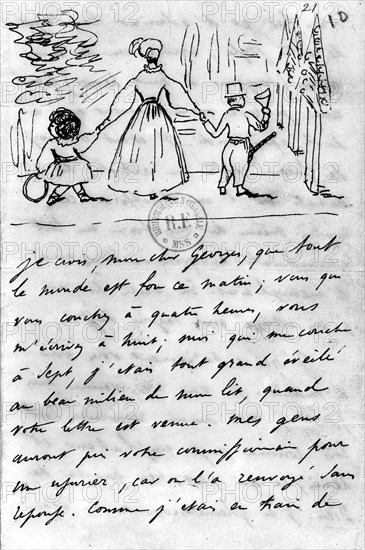 21
10
BIBLIOTHÈQUE NATIONALE
R.F.
MSS
je crois, mon cher Georges, que tout
le monde est fou ce matin ; vous qui
vous couchez à quatre heures, vous
m'écrivez à huit ; moi qui me couche
à sept, j'étais tout grand éveillé
au beau milieu de mon lit, quand
votre lettre est venue. mes gens
auront pris votre commissionnaire pour
un usurier, car on l'a renvoyé sans
réponse. Comme j'étais en train de
PHOTO12